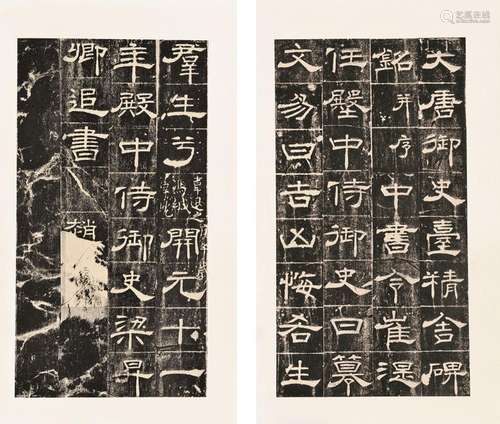 大唐御史臺精舍碑
銘并序中書令崔湜
任殿中侍御史日纂
文易曰吉凶悔吝生
羣生兮開元十一
年殿中侍御史梁昇
卿追書